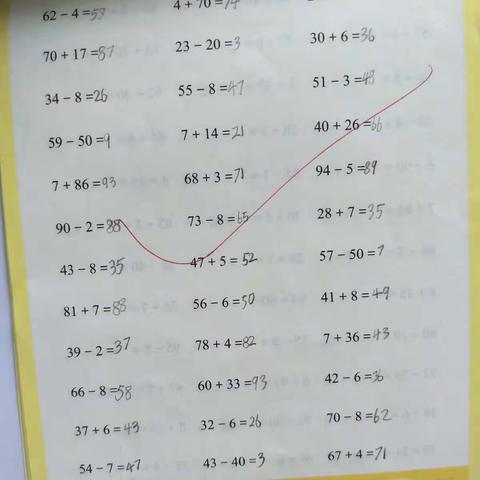 62 - 4 = 58 4 + 70 = 74
70 + 17 = 87 23 - 20 = 3 30 + 6 = 36
34 - 8 = 26 55 - 8 = 47 51 - 3 = 48
59 - 50 = 9 7 + 14 = 21 40 + 26 = 66
7 + 86 = 93 68 + 3 = 71 94 - 5 = 89
90 - 2 = 88 73 - 8 = 65 28 + 7 = 35
43 - 8 = 35 47 + 5 = 52 57 - 50 = 7
81 + 7 = 88 56 - 6 = 50 41 + 8 = 49
39 - 2 = 37 78 + 4 = 82 7 + 36 = 43
66 - 8 = 58 60 + 33 = 93 42 - 6 = 36
37 + 6 = 43 32 - 6 = 26 70 - 8 = 62
54 - 7 = 47 43 - 40 = 3 67 + 4 = 71